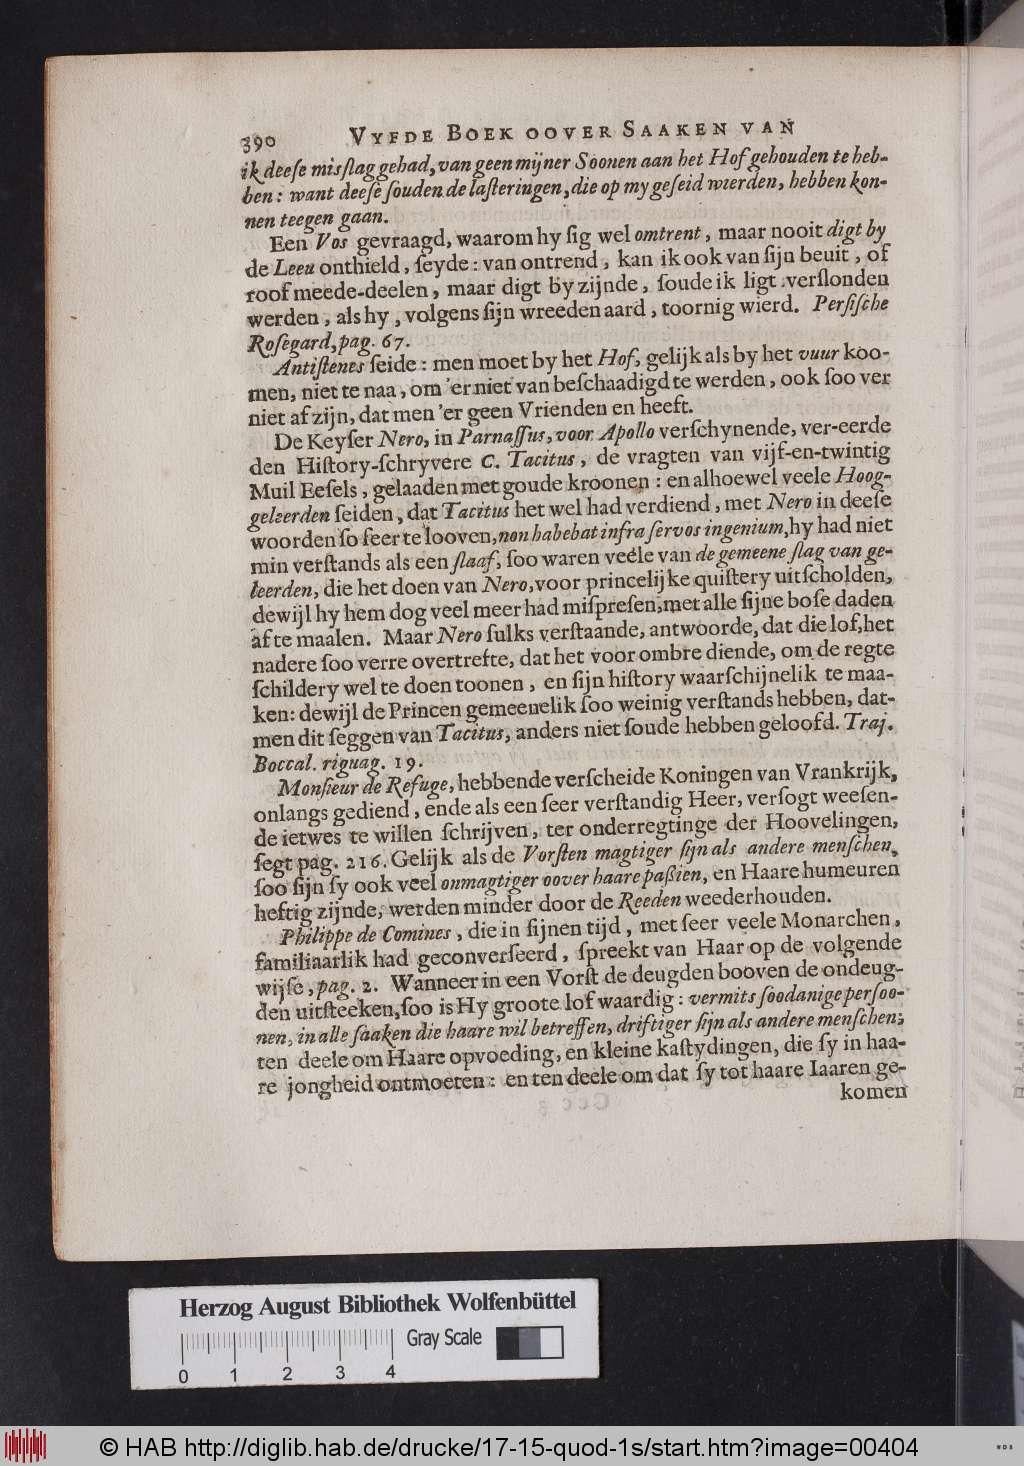 390 VYFDE BOEK OOVER SAAKEN VAN
ik deeſe misſlag gehad, van geen mijner Soonen aan het Hof gehouden te heb-
ben: want deeſe ſouden de laſteringen, die op my geſeid wierden, hebben kon-
nen teegen gaan.
Een Vos gevraagd, waarom hy ſig wel omtrent, maar nooit digt by
de Leeu onthield, ſeyde: van ontrend, kan ik ook van ſijn beuit, of
roof meede-deelen, maar digt by zijnde, ſoude ik ligt verſlonden
werden, als hy, volgens ſijn wreeden aard, toornig wierd. Perſiſche
Roſegard, pag. 67.
Antiſtenes ſeide: men moet by het Hof, gelijk als by het vuur koo-
men, niet te naa, om 'er niet van beſchaadigd te werden, ook ſoo ver
niet af zijn, dat men 'er geen Vrienden en heeft.
De Keyſer Nero, in Parnaſſus, voor Apollo verſchynende, ver-eerde
den Hiſtory-ſchryvere C. Tacitus, de vragten van vijf-en-twintig
Muil Eeſels, gelaaden met goude kroonen: en alhoewel veele Hoog-
geleerden ſeiden, dat Tacitus het wel had verdiend, met Nero in deeſe
woorden ſo ſeer te looven, non habebat infra ſervos ingenium, hy had niet
min verſtands als een ſlaaf, ſoo waren veele van de gemeene ſlag van ge-
leerden, die het doen van Nero, voor princelijke quiſtery uitſcholden,
dewijl hy hem dog veel meer had miſpreſen, met alle ſijne boſe daden
af te maalen. Maar Nero ſulks verſtaande, antwoorde, dat die lof, het
nadere ſoo verre overtrefte, dat het voor ombre diende, om de regte
ſchildery wel te doen toonen, en ſijn hiſtory waarſchijnelik te maa-
ken: dewijl de Princen gemeenelik ſoo weinig verſtands hebben, dat-
men dit ſeggen van Tacitus, anders niet ſoude hebben geloofd. Traj.
Boccal. riguag. 19.
Monſieur de Refuge, hebbende verſcheide Koningen van Vrankrijk,
onlangs gediend, ende als een ſeer verſtandig Heer, verſogt weeſen-
de ietwes te willen ſchrijven, ter onderregtinge der Hoovelingen,
ſegt pag. 216. Gelijk als de Vorſten magtiger ſijn als andere menſchen,
ſoo ſijn ſy ook veel onmagtiger oover haare paſſien, en Haare humeuren
heftig zijnde, werden minder door de Reeden weederhouden.
Philippe de Comines, die in ſijnen tijd, met ſeer veele Monarchen,
familiaarlik had geconverſeerd, ſpreekt van Haar op de volgende
wijſe, pag. 2. Wanneer in een Vorſt de deugden booven de ondeug-
den uitſteeken, ſoo is Hy groote lof waardig: vermits ſoodanige perſoo-
nen, in alle ſaaken die haare wil betreffen, driftiger ſijn als andere menſchen;
ten deele om Haare opvoeding, en kleine kaſtydingen, die ſy in haa-
re jongheid ontmoeten: en ten deele om dat ſy tot haare Iaaren ge-
komen
Herzog August Bibliothek Wolfenbüttel
Gray Scale
0 1 2 3 4
© HAB http://diglib.hab.de/drucke/17-15-quod-1s/start.htm?image=00404